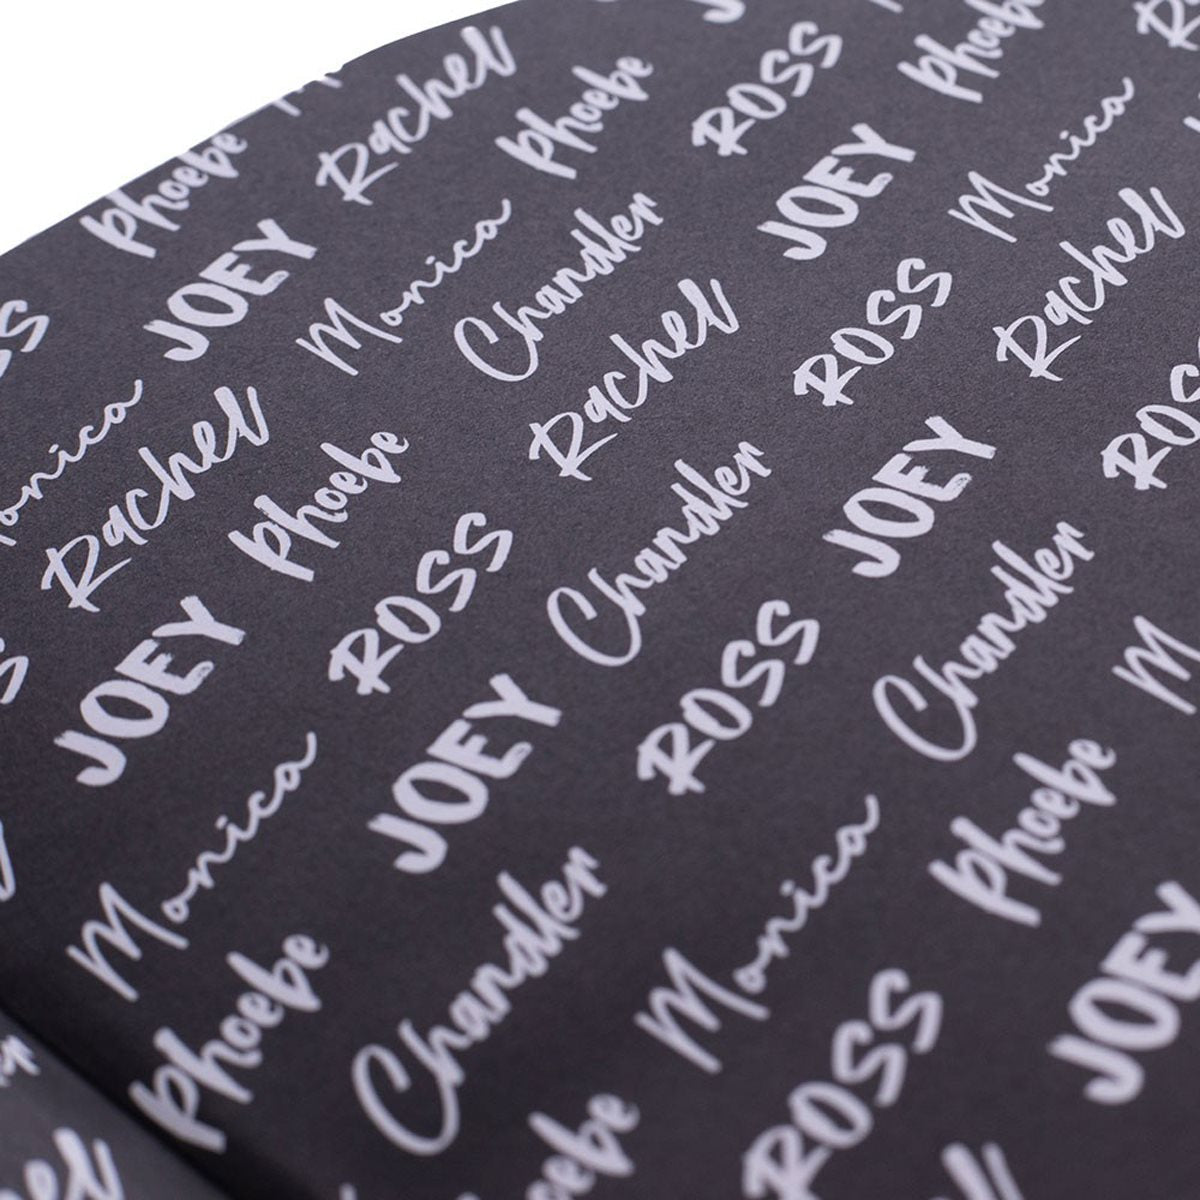 Phoebe
JOEY Rachel
Rachel Monica Phoebe
JOEY Phoebe Chandler ROSS
Monica ROSS Rachel JOEY Phoebe
Phoebe JOEY Chandler ROSS Monica
Chandler ROSS JOEY Rachel
Monica Chandler ROSS
ROSS Phoebe
JOEY